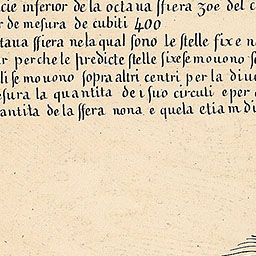 cie inferior de la octaua spera zoe del c
r de mesura de cubiti 400
taua spera nela qual sono le stelle fixe n
r perche le predicte stelle fixe se mouono s
li se mouono sopra altri centri per la diu
esura la quantita de i suo circuli e per
antita de la spera nona e quela etiam di